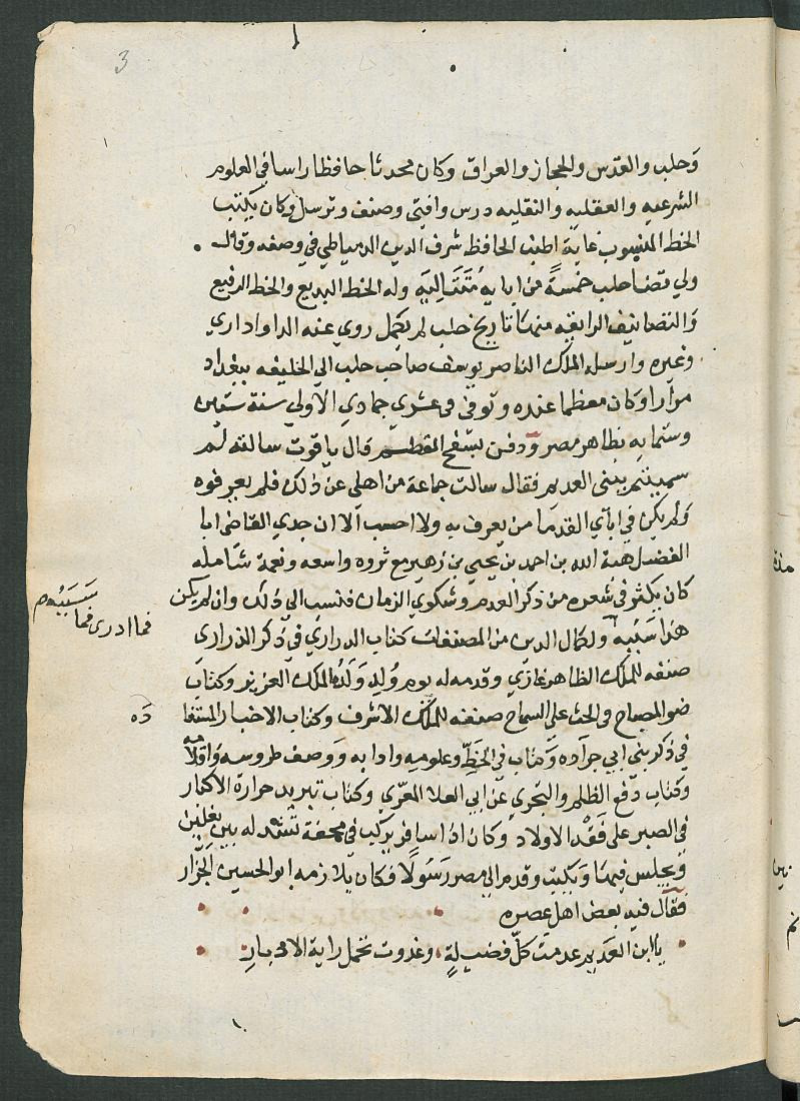 3
وحلب والقدس والحجاز والعراق وكان محدثا حافظا راسا في العلوم
الشرعيه والعقليه والنقليه درس وافتى وصنف وترسل وكان يكتب
الخط المنسوب غاية اطنب الحافظ شرف الدين الدمياطي في وصفه وقال
ولي قضا حلب خمسةٌ من ابايه مُتَتَالِيَه وله الخط البديع والخط الرفيع
والتصانيف الرايقه منها تاريخ حلب لم يكمل روي عنه الداواداري
وغيره وارسله الملك الناصر يوسف صاحب حلب الي الخليفه ببغداد
مرارا وكان معظما عنده وتوفي في عشري جمادي الاولي سنة ستين
وستمايه بظاهر مصر ودفن بسفح المقطم قال ياقوت سالته لم
سميتم ببني العديم فقال سالت جماعة من اهلي عن ذلك فلم يعرفوه
ولم يكن في ابآي القدما من يعرف به ولا احسب الا ان جدي القاضي ابا
الفضل هبة الله بن احمد بن يحيي بن زهير مع ثروه واسعه ونعمة شامله
كان يكثر في شعره من ذكر العدم وشكوي الزمان فنسب الي ذلك وان لم يكن
هذا سَبَبُه ولكمال الدين من المصنفات كتاب الدراري في ذكر الذراري
صنفه للملك الظاهر غازي وقدمه له يوم وُلِد وَلَدُه الملك العزيز وكتاب
ضو المصباح في الحث علي السماح صنفه للملك الاشرف وكتاب الاخبار المستفا
في ذكر بني ابي جراده وكتاب في الخَطِّ وعلومه وادابه ووصف طروسه واقلامه
وكتاب دفع الظلم والتجري عن ابي العلا المعرّي وكتاب تبريد حرارة الاكباد
في الصبر علي فَقْد الاولاد وكان اذا سافر يركب في محفة تُشَدّ له بين بغلين
ويجلس فيها ويكتب وقدم الي مصر رَسُولًا فكان يلازمه ابو الحسين الجزار
فقال فيه بعض اهل عصره
يا ابن العديم عدمت كلّ فضيلةٍ وغدوت تحمل راية الادبارِ
سَبَبُه م
فما ادري فما
دَه